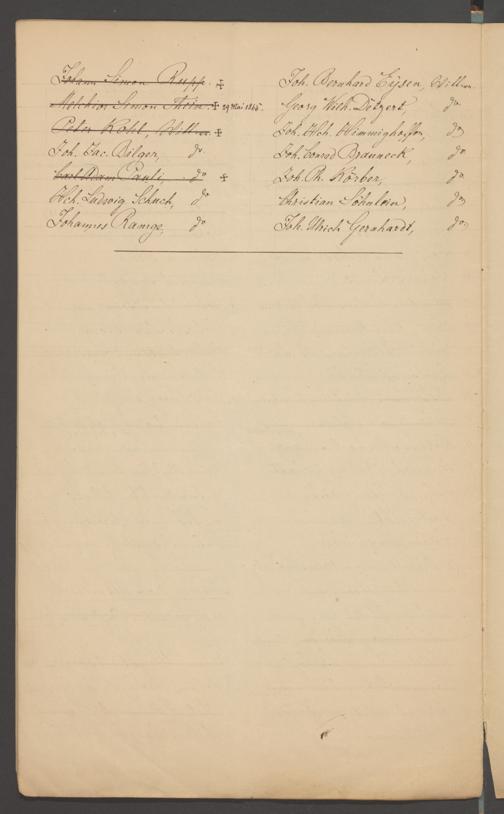 Johann Simon Rupp. ✠
Melchior Simon ✠ 29 Mai 1865.
Peter Kohl, Wittwer ✠
Joh. Jac. Bilger, do
Carl Adam Pauli, do ✠
Hch. Ludwig Schuch, do
Johannes Ramge, do
Joh. Bernhard Eysen, Wittwer
Georg Wilh. Ditzert do
Joh. Hch. Himmighoffen, do
Joh. Conrad Brauneck, do
Joh. Ph. Körber, do
Christian Söhnlein, do
Joh. Ulrich Gernhardt, do